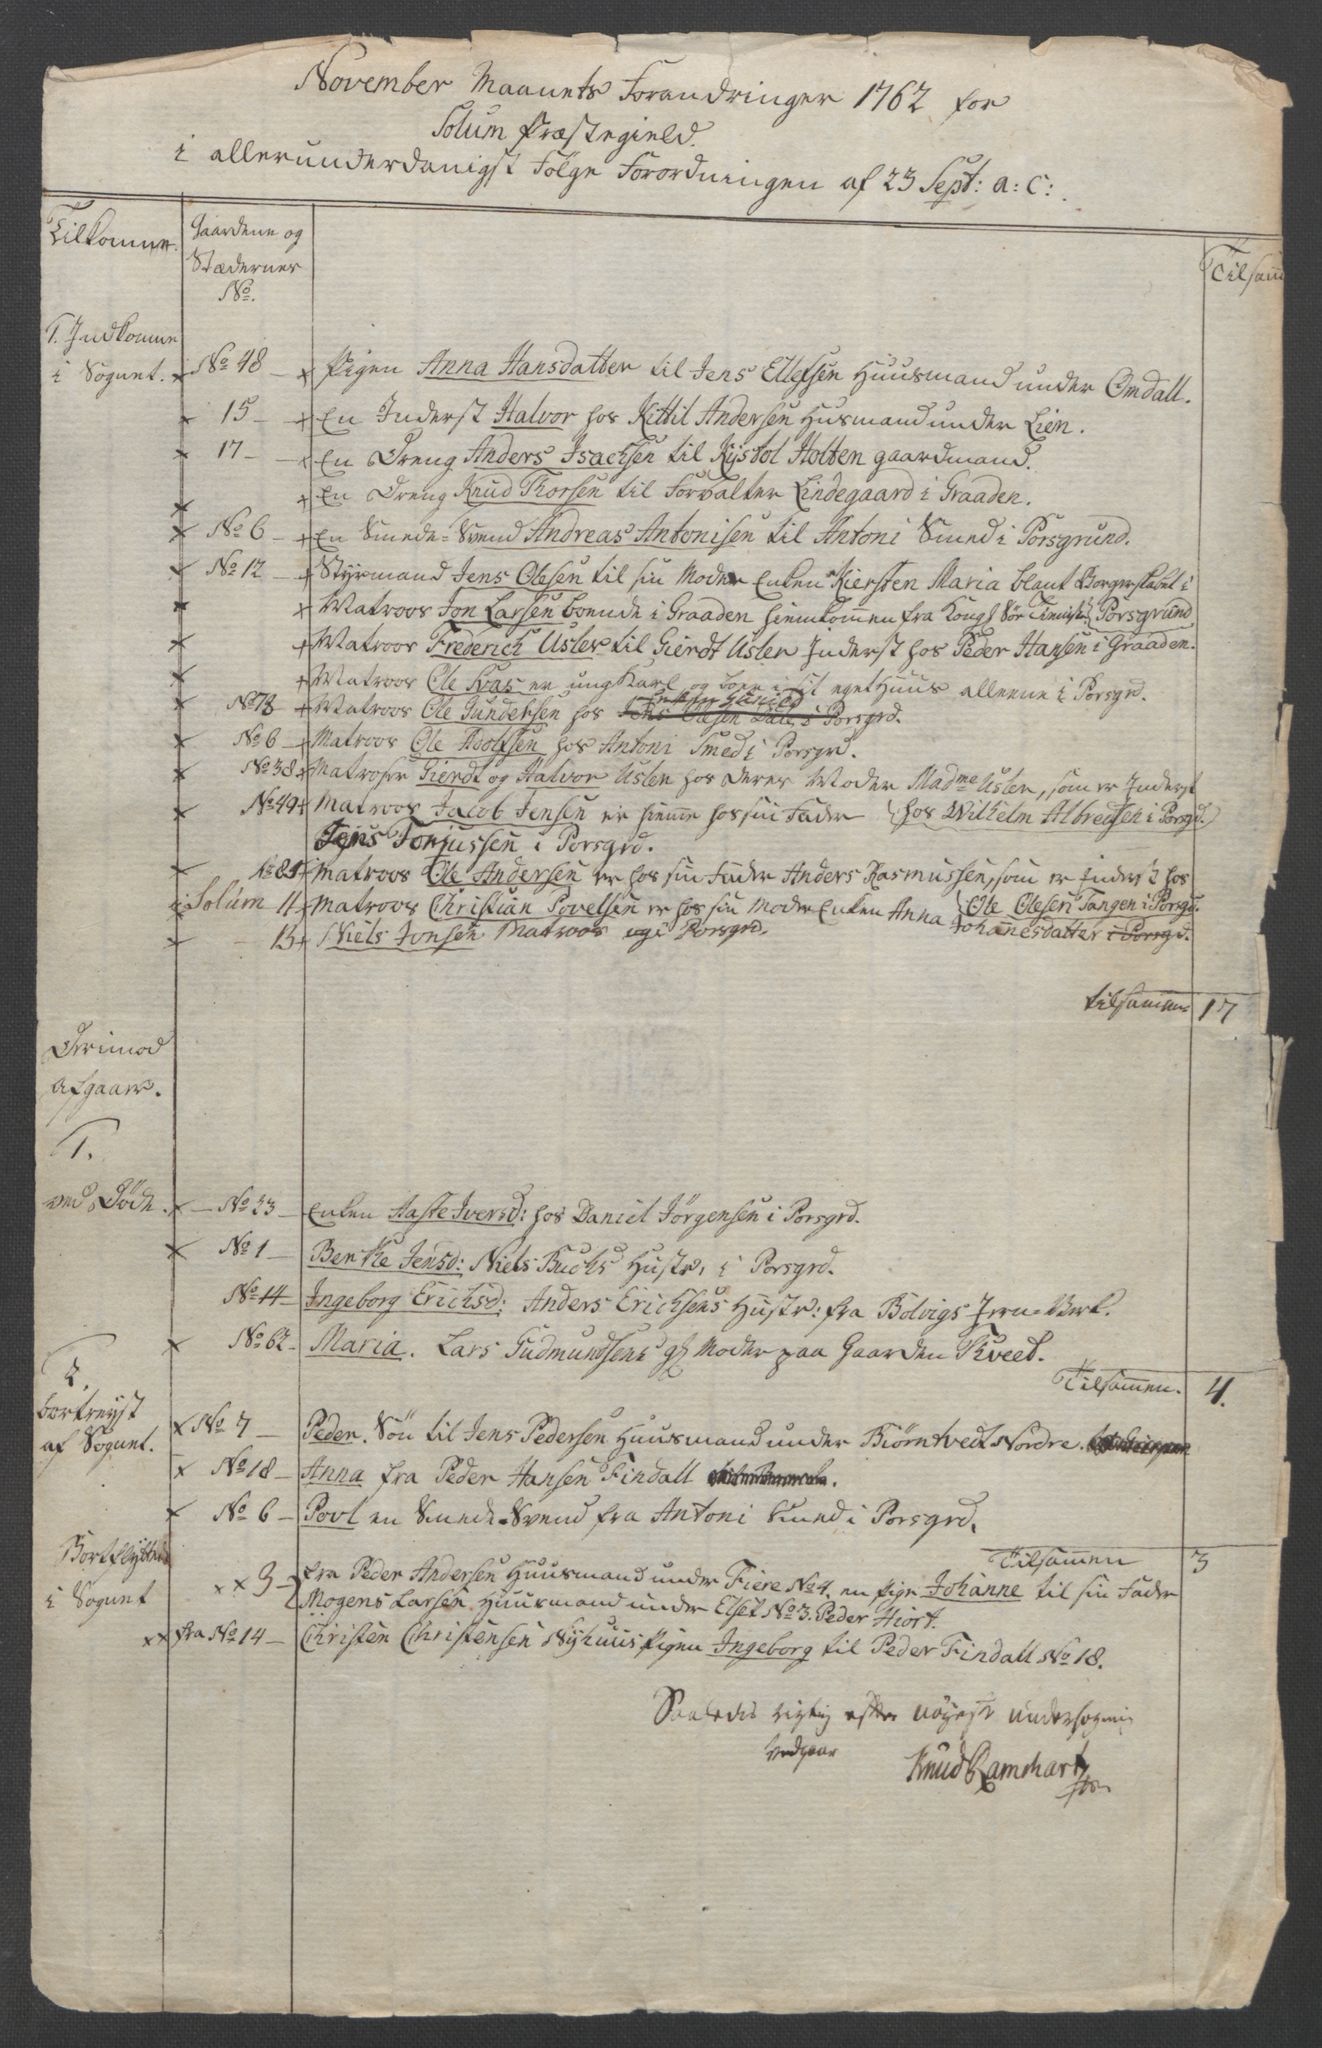 November Maanets Forandringer 1762 for
Solum Præstegield.
i allerunderdanigst Følge Forordningen af 23 Sept: a: c:
Tilkomne. Gaardene og Stædernes No. Tilsam
1. Indkomne
i Sognet. x No 48 x Pigen Anna Hansdatter til Jens Ellefsen Huusmand under Omdall.
x 15 - x En Inderst Halvor hos Kittil Andersen Husmand under Lien.
x 17 - x En Dreng Anders Isachsen til Kystol Holten gaardmand.
x x En Dreng Knud Thorsen til Forvalter Lindegaard i Graaden.
x No 6 - x En Smede-Svend Andreas Antonisen til Antoni Smed i Porsgrund.
x No 12 - x Styrmand Jens Olesen til sin Moder Enken Kiersten Maria blant Borgerskabet i Porsgrund
x x Matroos Jon Larsen boende i Graaden hiemkommen fra Kongl Søe Tieniste
x x Matroos Frederich Usler til Gierdt Usler Inderst hos Peder Hansen i Graaden.
x x Matroos Ole Svas er ung Karl og boer i sit eget Huus alleene i Porsgrd.
x No 78 - x Matroos Ole Gundersen hos Enken Gunild Jens Olesen Dale i Porsgrd.
x No 6 - x Matroos Ole Adolfsen hos Antoni Smed i Porsgrd.
x No 38 x Matroser Gierdt og Halvor Usler hos deres Moder Madme Usler, som er Inderst
x No 49 x Matroos Jacob Jensen er hiemme hos sin Fader (hos Wilhelm Albretsen i Porsgrd.)
Jens Tonjussen i Porsgrd.
x No 81 x Matroos Ole Andersen er hos sin Fader Anders Rasmussen, som er Inderst hos
i Solum 11 x Matroos Christian Povelsen er hos sin Moder Enken Anna (Ole Olesen Tangen i Porsgrd.
x 13 x Niels Jonsen Matroos i Porsgrd. Johanesdatter i Porsgrd.
tilsammen 17
Derimod
afgaaer.
1.
ved Døde. x - No 23 - Enken Aaste Iversd: hos Daniel Jörgensen i Porsgrd.
x No 1 - Benthe Jensd: Niels Buchs Hustr. i Porsgrd.
No 14 - Ingeborg Erichsd: Anders Erichsens Hustr: fra Bolvigs Jern-Verk.
x No 62 - Maria. Lars Gudmundsens gl Moder paa Gaarden Kveet.
Tilsammen. 4.
2.
bortreyst
af Sognet. x No 7 - Peder. Søn til Jens Pedersen Huusmand under Biörntvedt Nordre.
x No 18 - Anna fra Peder Hansen Findall
x No 6 - Povl en Smede-Svend fra Antoni Smed i Porsgrd.
Tilsammen 3
Bortflyttede
i Sognet x x 3 - fra Peder Andersen Huusmand under Fiere No 4. en Pige Johanne til sin Fader
Mogens Larsen Huusmand under Elset No 3. Peder Hiort.
xx fra No 14 - Christen Christensen Nyhuus Pigen Ingeborg til Peder Findall No 18.
Saaledes rigtig efter nøyeste undersøgning
vedgaar
Knud Ramshart